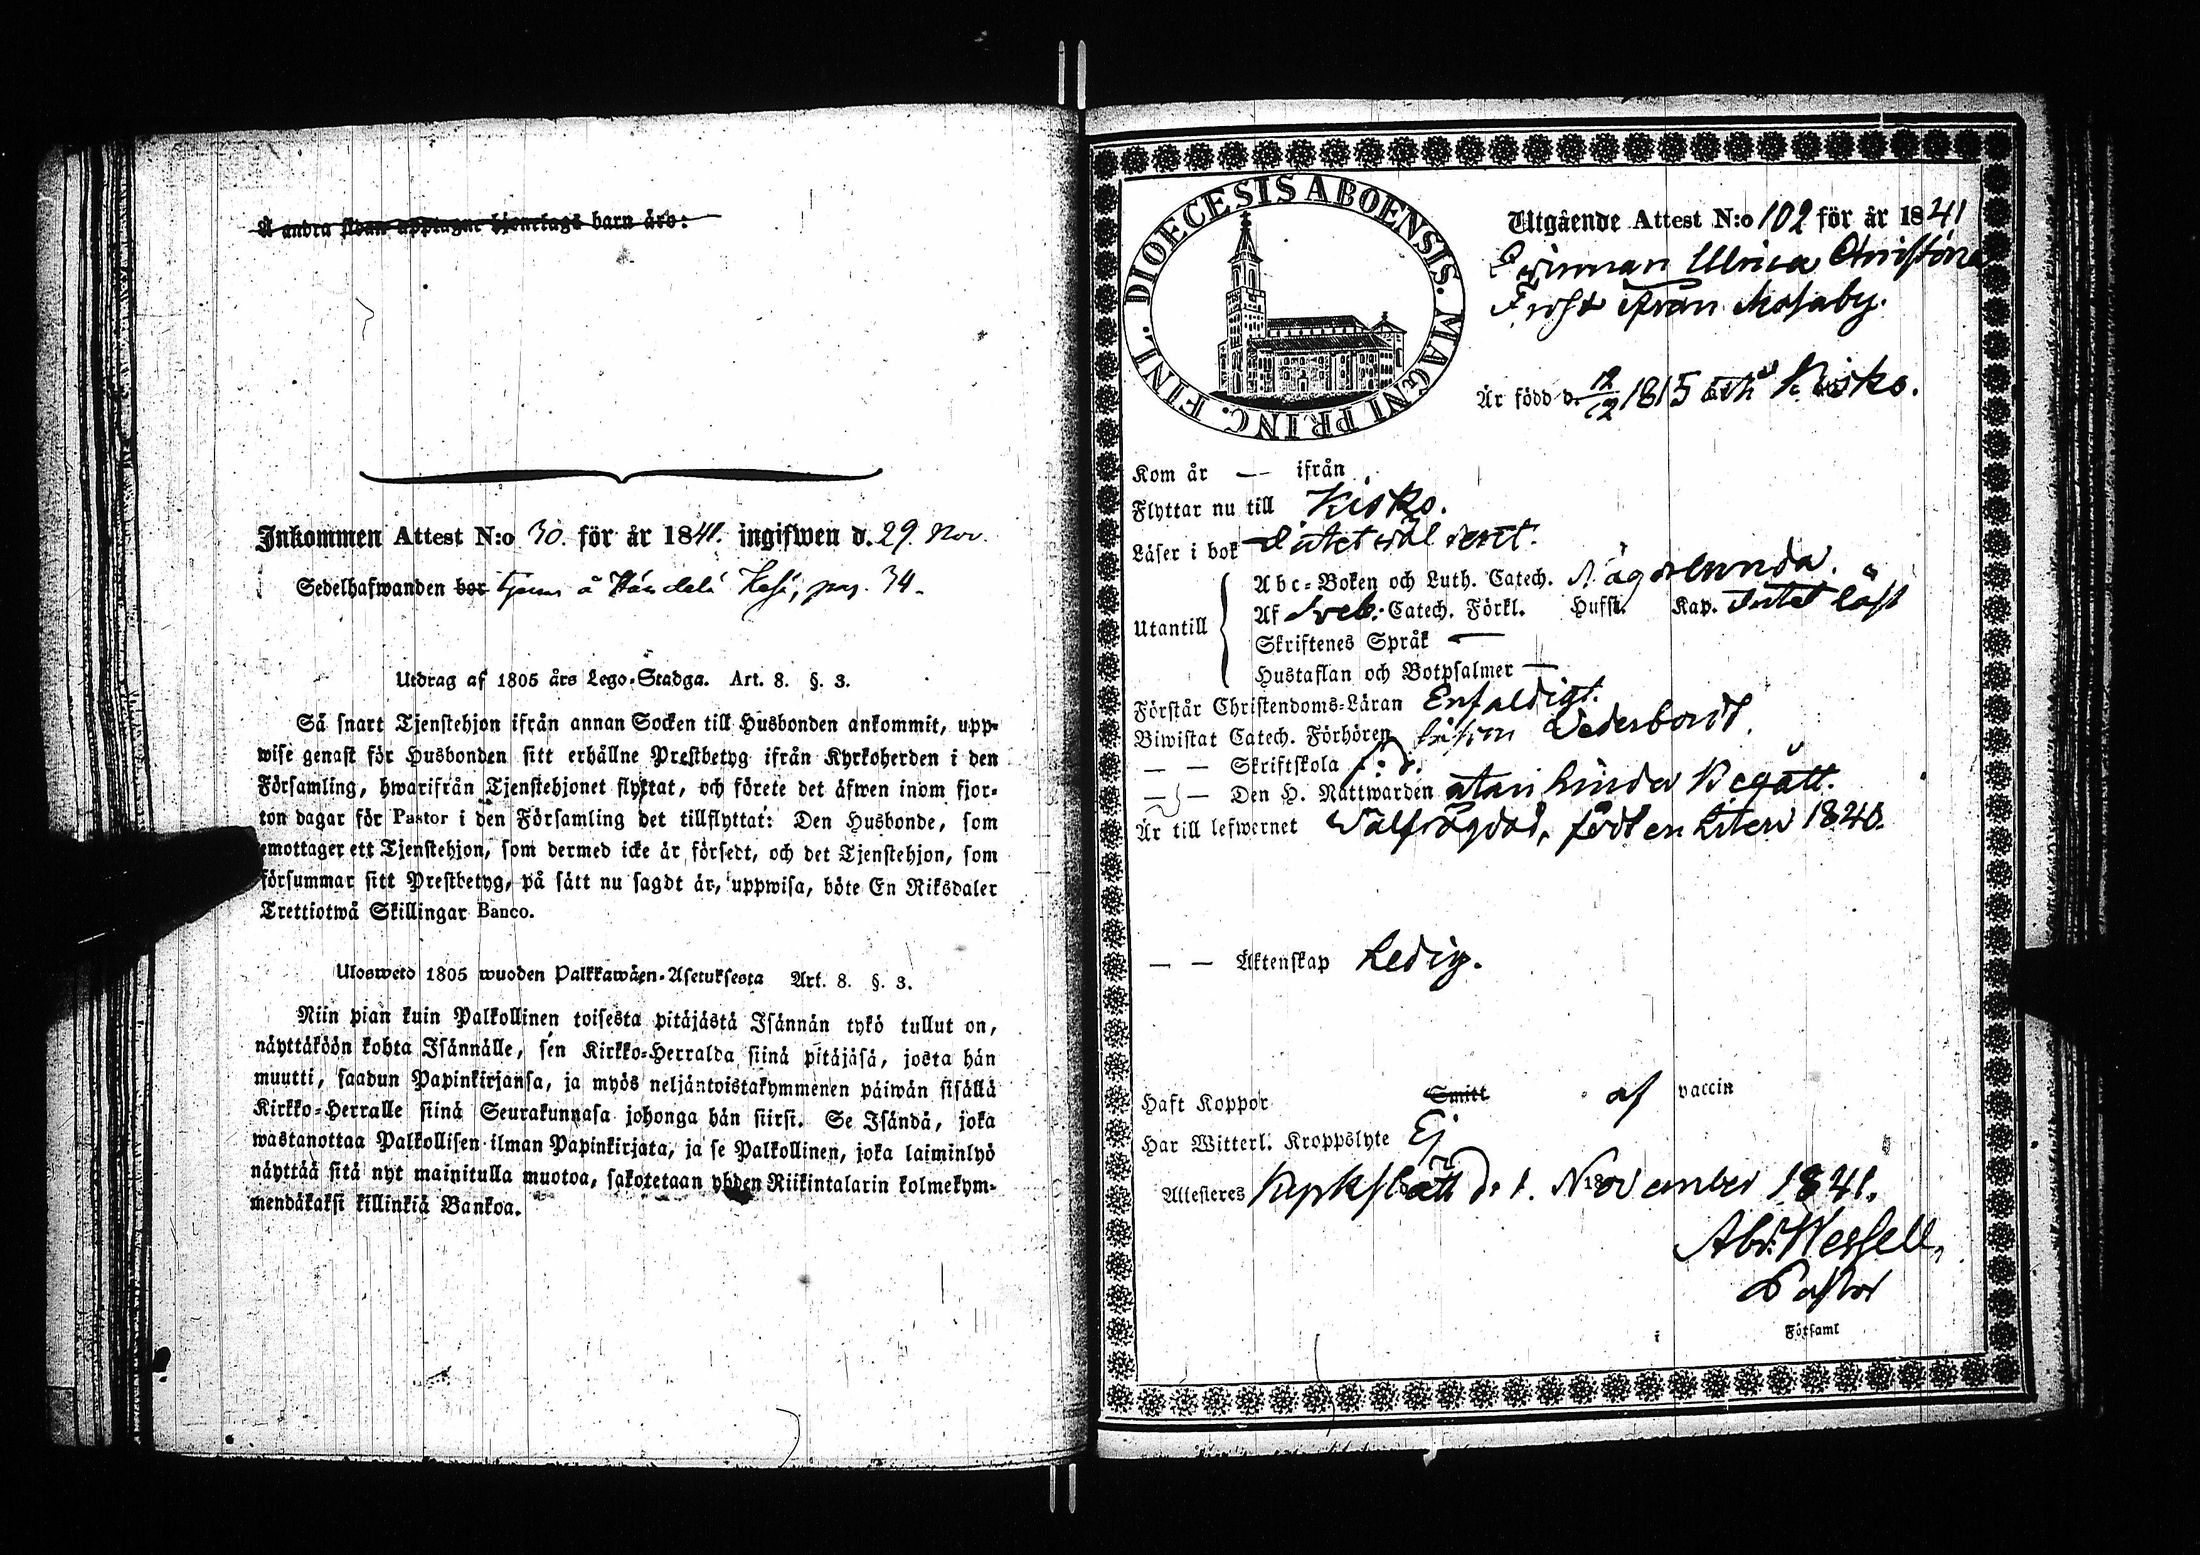 Å andra sidan upptagne tjenstags barn äro:
Inkommen Attest N:o 30. för år 1841. ingifwen d. 29. Nov.
Sedelhafwanden bor tjenar å Handelä Kesi, pag. 34.
Utdrag af 1805 års Lego-Stadga. Art. 8. §. 3.
Så snart Tjenstehjon ifrån annan Socken till Husbonden ankommit, upp-
wise genast för Husbonden sitt erhållne Prestbetyg ifrån Kyrkoherden i den
Församling, hwarifrån Tjenstehjonet flyttat, och förete det äfwen inom fjor-
ton dagar för Pastor i den Församling det tillflyttat: Den Husbonde, som
emottager ett Tjenstehjon, som dermed icke är försedt, och det Tjenstehjon, som
försummar sitt Prestbetyg, på sätt nu sagdt är, uppwisa, böte En Riksdaler
Trettiotwå Skillingar Banco.
Ulosweto 1805 wuoden Palkkawäen-Asetuksesta Art. 8. §. 3.
Niin pian kuin Palkollinen toisesta pitäjästä Isännän tykö tullut on,
näyttäköön kohta Isännälle, sen Kirkko-Herralda siinä pitäjäsä, josta hän
muutti, saadun Papinkirjansa, ja myös neljäntoistakymmenen päiwän sisällä
Kirkko-Herralle siinä Seurakunnasa johonga hän siirsi. Se Isändä, joka
wastanottaa Palkollisen ilman Papinkirjata, ja se Palkollinen, joka laiminlyö
näyttää sitä nyt mainitulla muotoa, sakotetaan yhden Riikintalarin kolmekym-
mendäkaksi killinkiä Bankoa.
DIOECESIS ABOENSIS. MAGNI PRINC. FINL.
Utgående Attest N:o 102 för år 1841
Qwinnan Ulrica Christina
Frost från Mosaby.
Är född d. 12/12 1815 uti Kisko.
Kom år — ifrån
Flyttar nu till Kisko.
Läser i bok Intet wäl rent.
Utantill
Abc-Boken och Luth. Catech. Någorlunda.
Af Sveb: Catech. Förkl. Hufst. Kap. Intet läst
Skriftenes Språk —
Hustaflan och Botpsalmer —
Förstår Christendoms-Läran Enfaldigt.
Biwistat Catech. Förhören Wederbordt.
— — Skriftskola
— — Den H. Nattwarden utan hinder Begått.
Är till lefwernet Wälfrägdad, födt en 1840.
— — Äktenskap Ledig.
Haft Koppor Smitt af vaccin
Har Witterl. Kroppslyte Ej
Attesteres Kyrkslätt d. 1. November 1841.
Abr: Wessell,
Pastor
i Församl